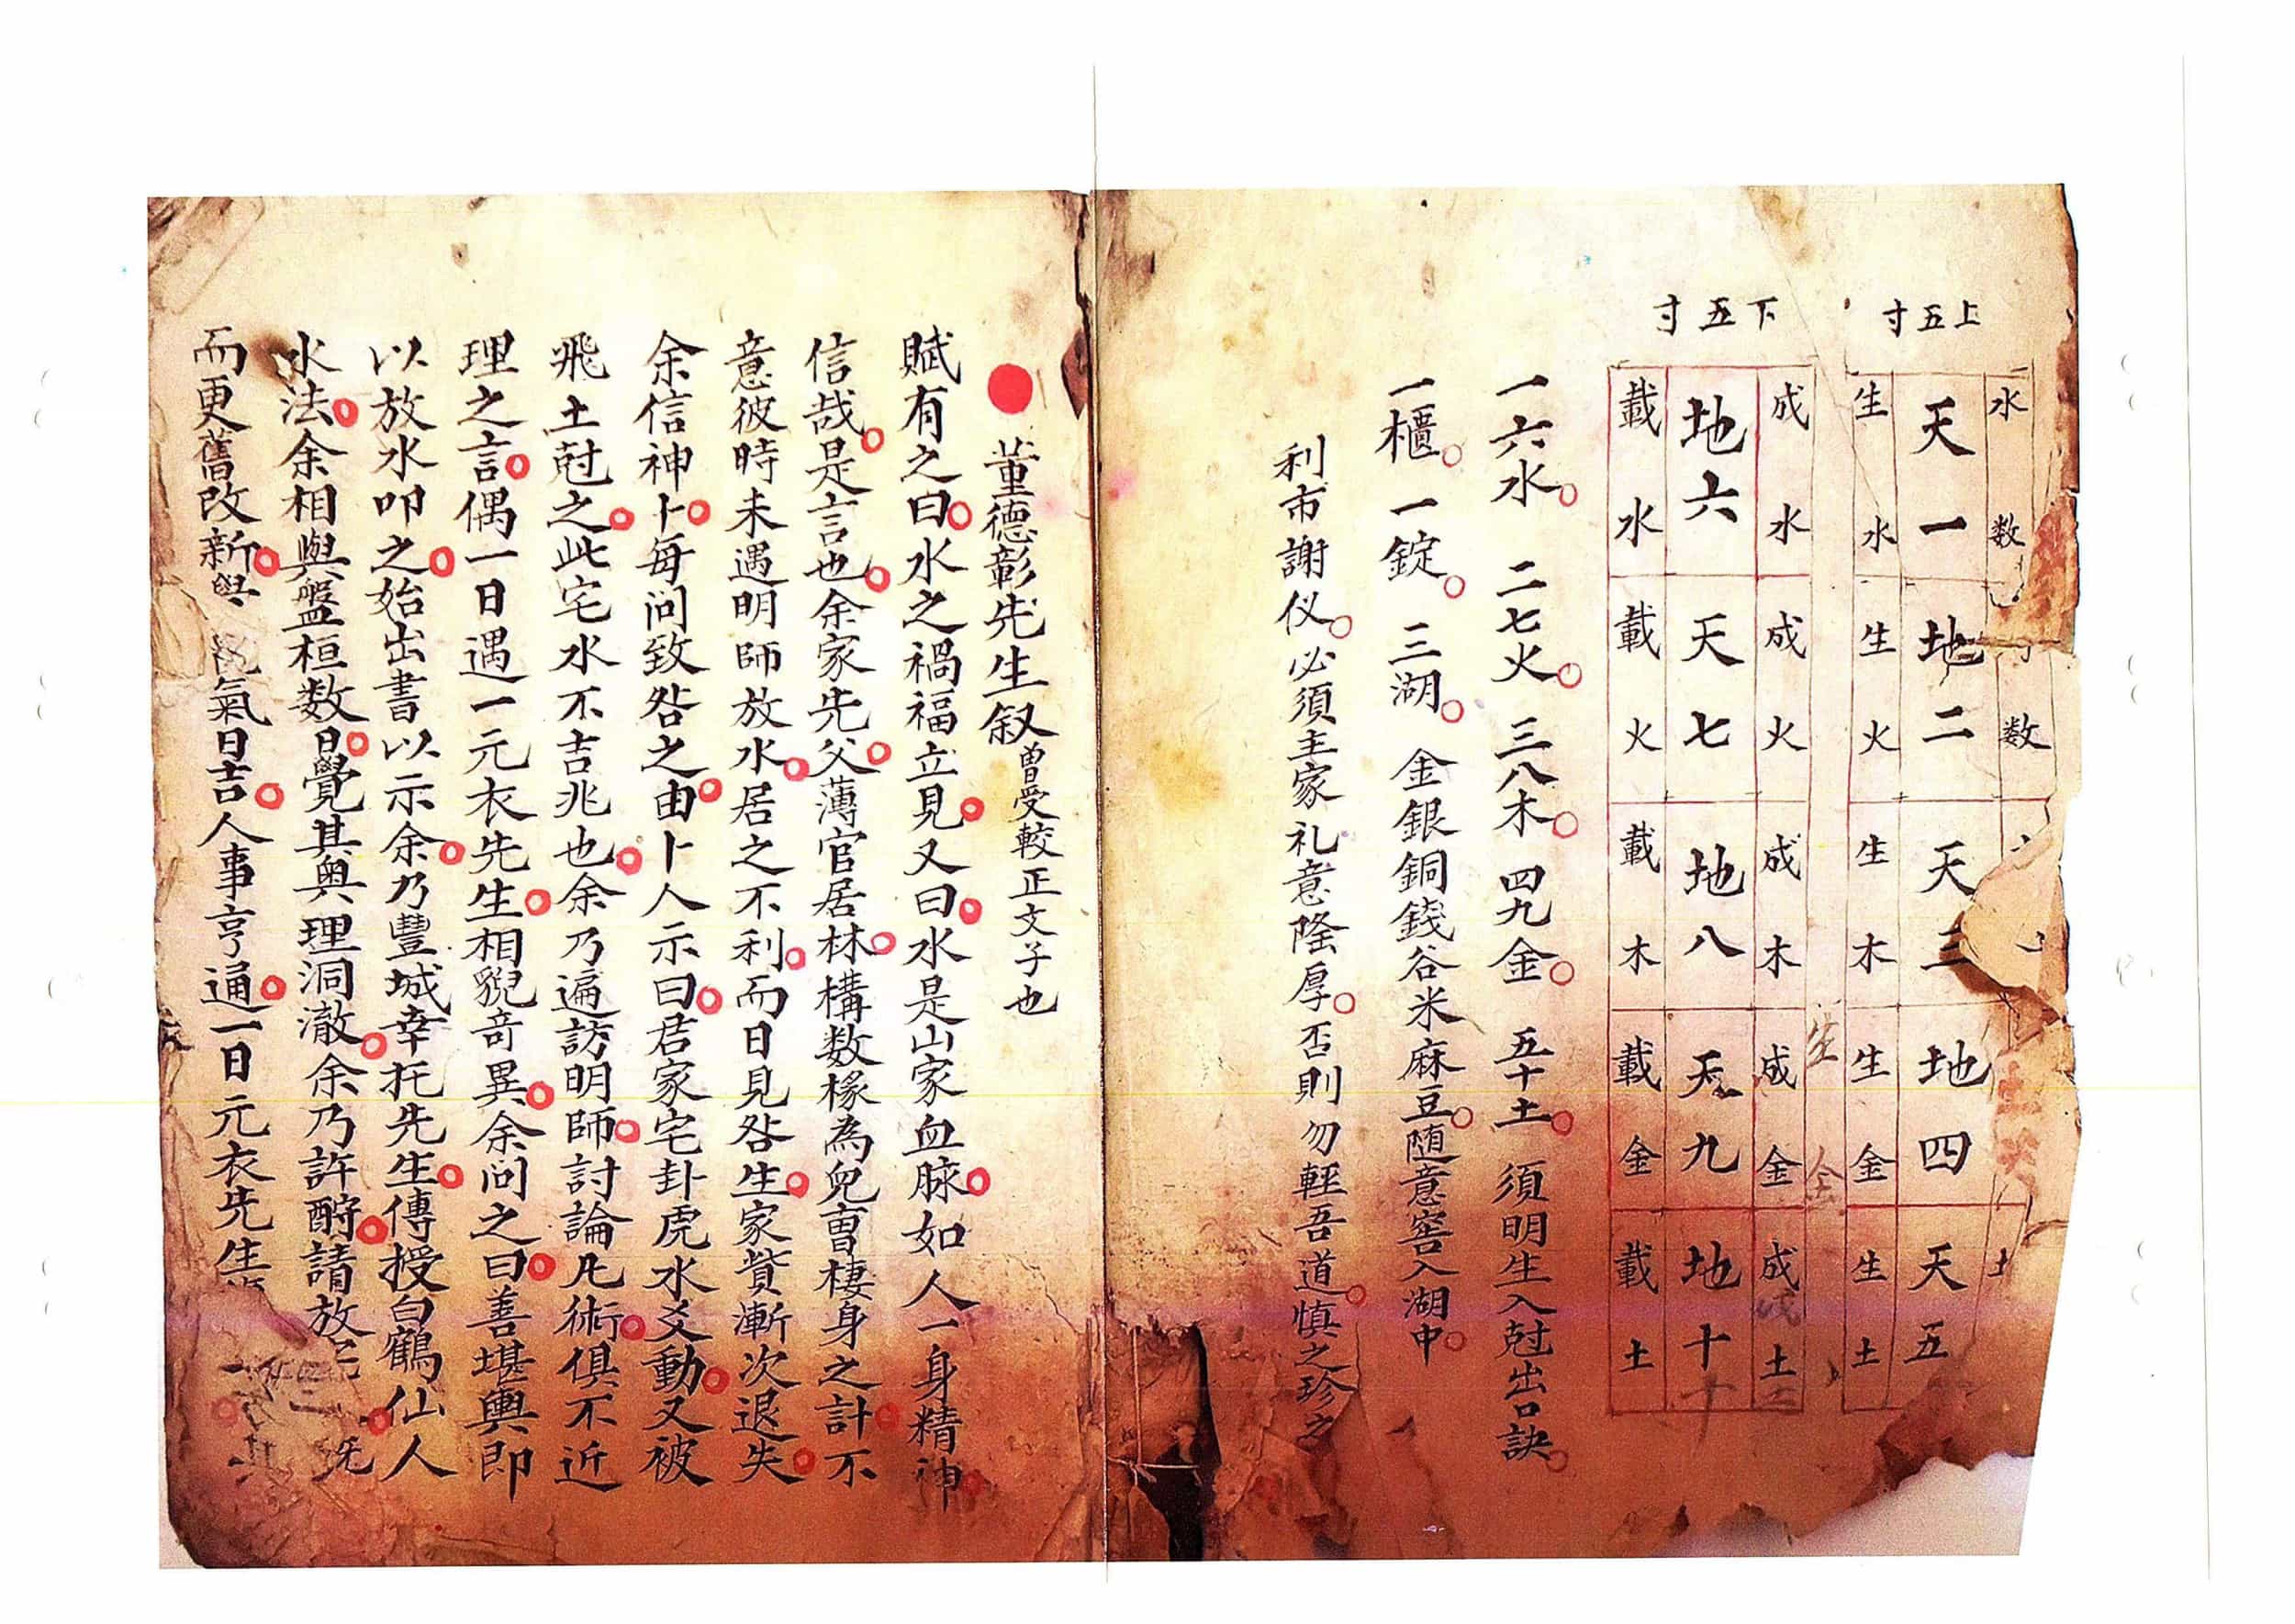 上五寸
水数 数 土
天一 地二 天三 地四 天五
生水 生火 生木 生金 生土
下五寸
成水 成火 成木 成金 成土
地六 天七 地八 天九 地十
載水 載火 載木 載金 載土
一六水 二七火 三八木 四九金 五十土 須明生入尅出口訣
一櫃 一錠 三湖 金銀銅錢谷米麻豆随意窖入湖中
利市謝仪必須主家礼意隆厚否則勿輕吾道慎之珍之
董德彰先生叙曽受較正文子也
賦有之曰水之禍福立見又曰水是山家血脉如人一身精神
信哉是言也余家先父薄官居林構数椽為兒曺棲身之計不
意彼時未遇明師放水居之不利而日見咎生家貲漸次退失
余信神卜每问致咎之由卜人示曰君家宅卦虎水爻動又被
飛土尅之此宅水不吉兆也余乃遍訪明師討論凡術俱不近
理之言偶一日遇一元衣先生相貌竒異余问之曰善堪輿即
以放水叩之始出書以示余乃豐城幸托先生傳授白鶴仙人
水法余相與盤桓数日覺其奥理洞澈余乃許酧請放
而更舊改新 氣日吉人事亨通一日元衣先生